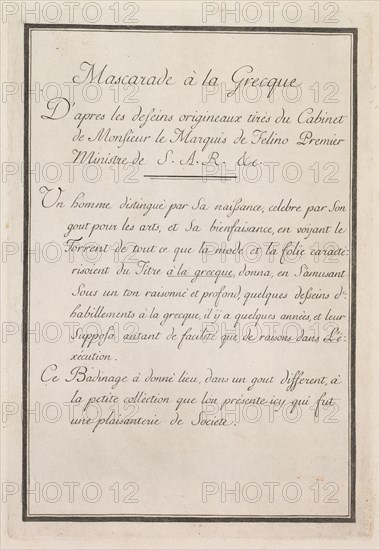 Mascarade à la Grecque
D'apres les desseins origineaux tirés du Cabinet
de Monsieur le Marquis de Felino Premier
Ministre de S. A. R. &c.
Un homme distingué par Sa naissance, celebre par Son
gout pour les arts, et Sa bienfaisance, en voijant le
Torrent de tout ce que la mode et la folie caracté
risoient du Titre à la grecque, donna, en S'amusant
Sous un ton raisonné et profond, quelques desseins d'
habillements à la grecque, il y a quelques années, et leur
Supposa, autant de facilité que de raisons dans L'é-
xécution.
Ce Badinage à donné lieu, dans un gout different, à
la petite collection que l'on présente icy qui fut
une plaisanterie de Societé.
PHOTO 12